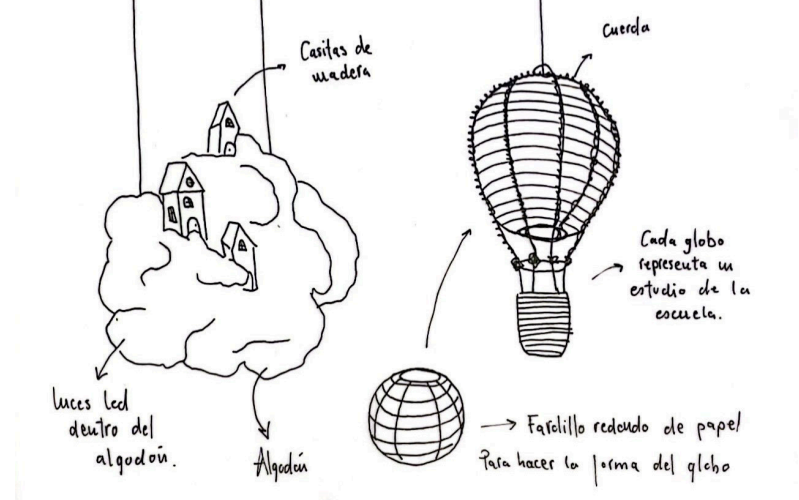 Casitas de
madera
Cuerda
Cada globo
representa un
estudio de la
escuela.
luces led
dentro del
algodón.
Algodón
Farolillo redondo de papel
Para hacer la forma del globo